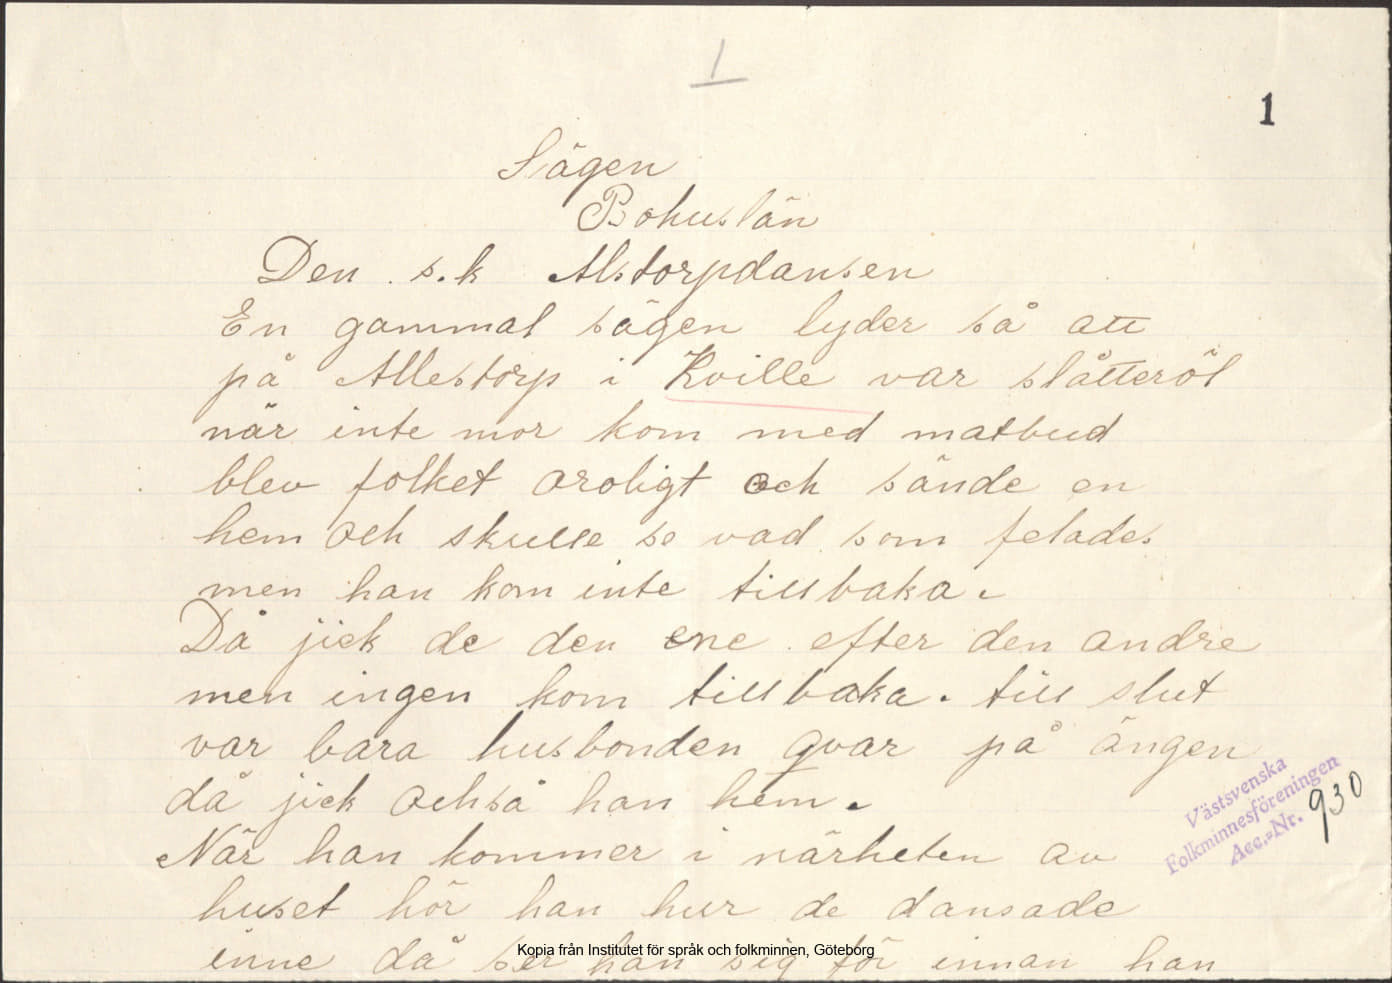 1
1
Sägen
Bohuslän
Den s.k Alstorpdansen
En gammal sägen lyder så att
på Allestorp i Kville var slåtteröl
när inte mor kom med matbud
blev folket oroligt och sände en
hem och skulle se vad som felades
men han kom inte tillbaka.
Då jick de den ene efter den andre
men ingen kom tillbaka. till slut
var bara husbonden qvar på ängen
då jick ochså han hem.
När han kommer i närheten av
huset hör han hur de dansade
inne då ser han sig för innan han
Västsvenska
Folkminnesföreningen
Acc.-Nr. 930
Kopia från Institutet för språk och folkminnen, Göteborg